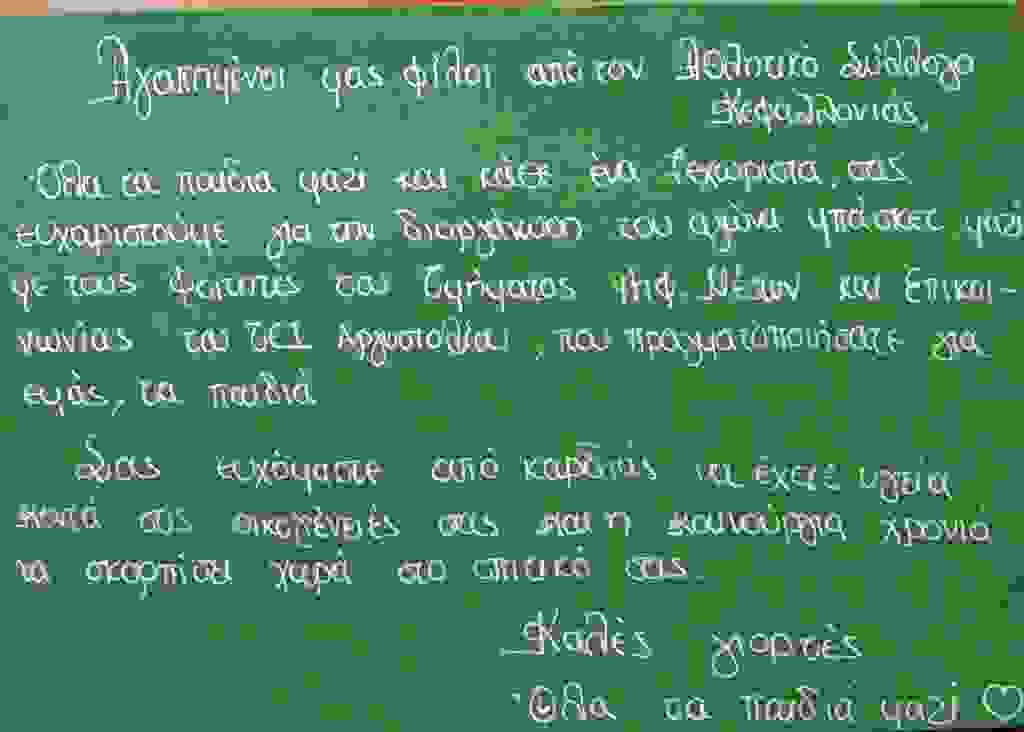 Αγαπημένοι μας φίλοι από τον Αθλητικό Σύλλογο
Κεφαλλονιάς,
Όλα τα παιδιά μαζί και κάθε ένα ξεχωριστά, σας
ευχαριστούμε για την διοργάνωση του αγώνα μπάσκετ μαζί
με τους φοιτητές του Τμήματος Ψηφ. Μέσων και Επικοι-
νωνίας του ΤΕΙ Αργοστολίου, που πραγματοποιήσατε για
εμάς, τα παιδιά
Σας ευχόμαστε από καρδιάς να έχετε υγεία
κοντά στις οικογένειές σας και η καινούργια χρονιά
να σκορπίσει χαρά στο σπιτικό σας.
Καλές γιορτές
Όλα τα παιδιά μαζί ♡